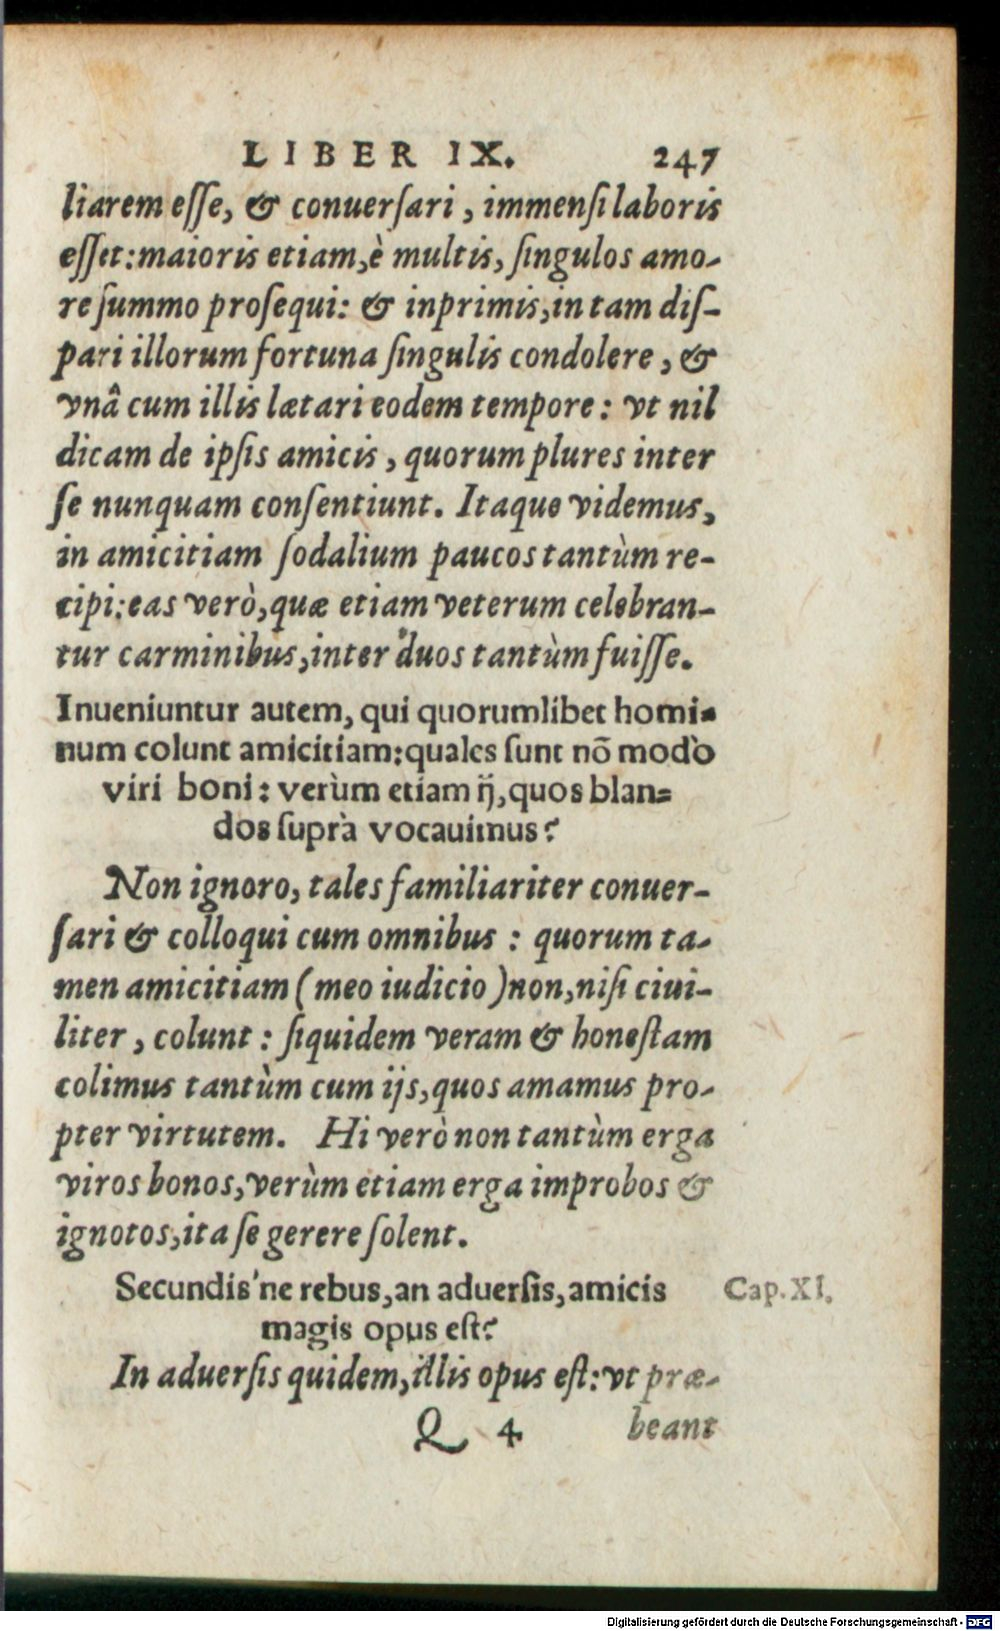 LIBER IX. 247
liarem eſſe, & conuerſari, immenſi laboris
eſſet: maioris etiam, è multis, ſingulos amo-
re ſummo proſequi: & inprimis, in tam diſ-
pari illorum fortuna ſingulis condolere, &
vnâ cum illis lætari eodem tempore: vt nil
dicam de ipſis amicis, quorum plures inter
ſe nunquam conſentiunt. Itaque videmus,
in amicitiam ſodalium paucos tantùm re-
cipi: eas verò, quæ etiam veterum celebran-
tur carminibus, inter duos tantùm fuiſſe.
Inueniuntur autem, qui quorumlibet homi-
num colunt amicitiam: quales ſunt nō modò
viri boni: verùm etiam ij, quos blan-
dos ſuprà vocauimus?
Non ignoro, tales familiariter conuer-
ſari & colloqui cum omnibus: quorum ta-
men amicitiam (meo iudicio) non, niſi ciui-
liter, colunt: ſiquidem veram & honeſtam
colimus tantùm cum ijs, quos amamus pro-
pter virtutem. Hi verò non tantùm erga
viros bonos, verùm etiam erga improbos &
ignotos, ita ſe gerere ſolent.
Secundis'ne rebus, an aduerſis, amicis Cap. XI.
magis opus eſt?
In aduerſis quidem, illis opus eſt: vt præ-
Q 4 beant
Digitalisierung gefördert durch die Deutsche Forschungsgemeinschaft - DFG